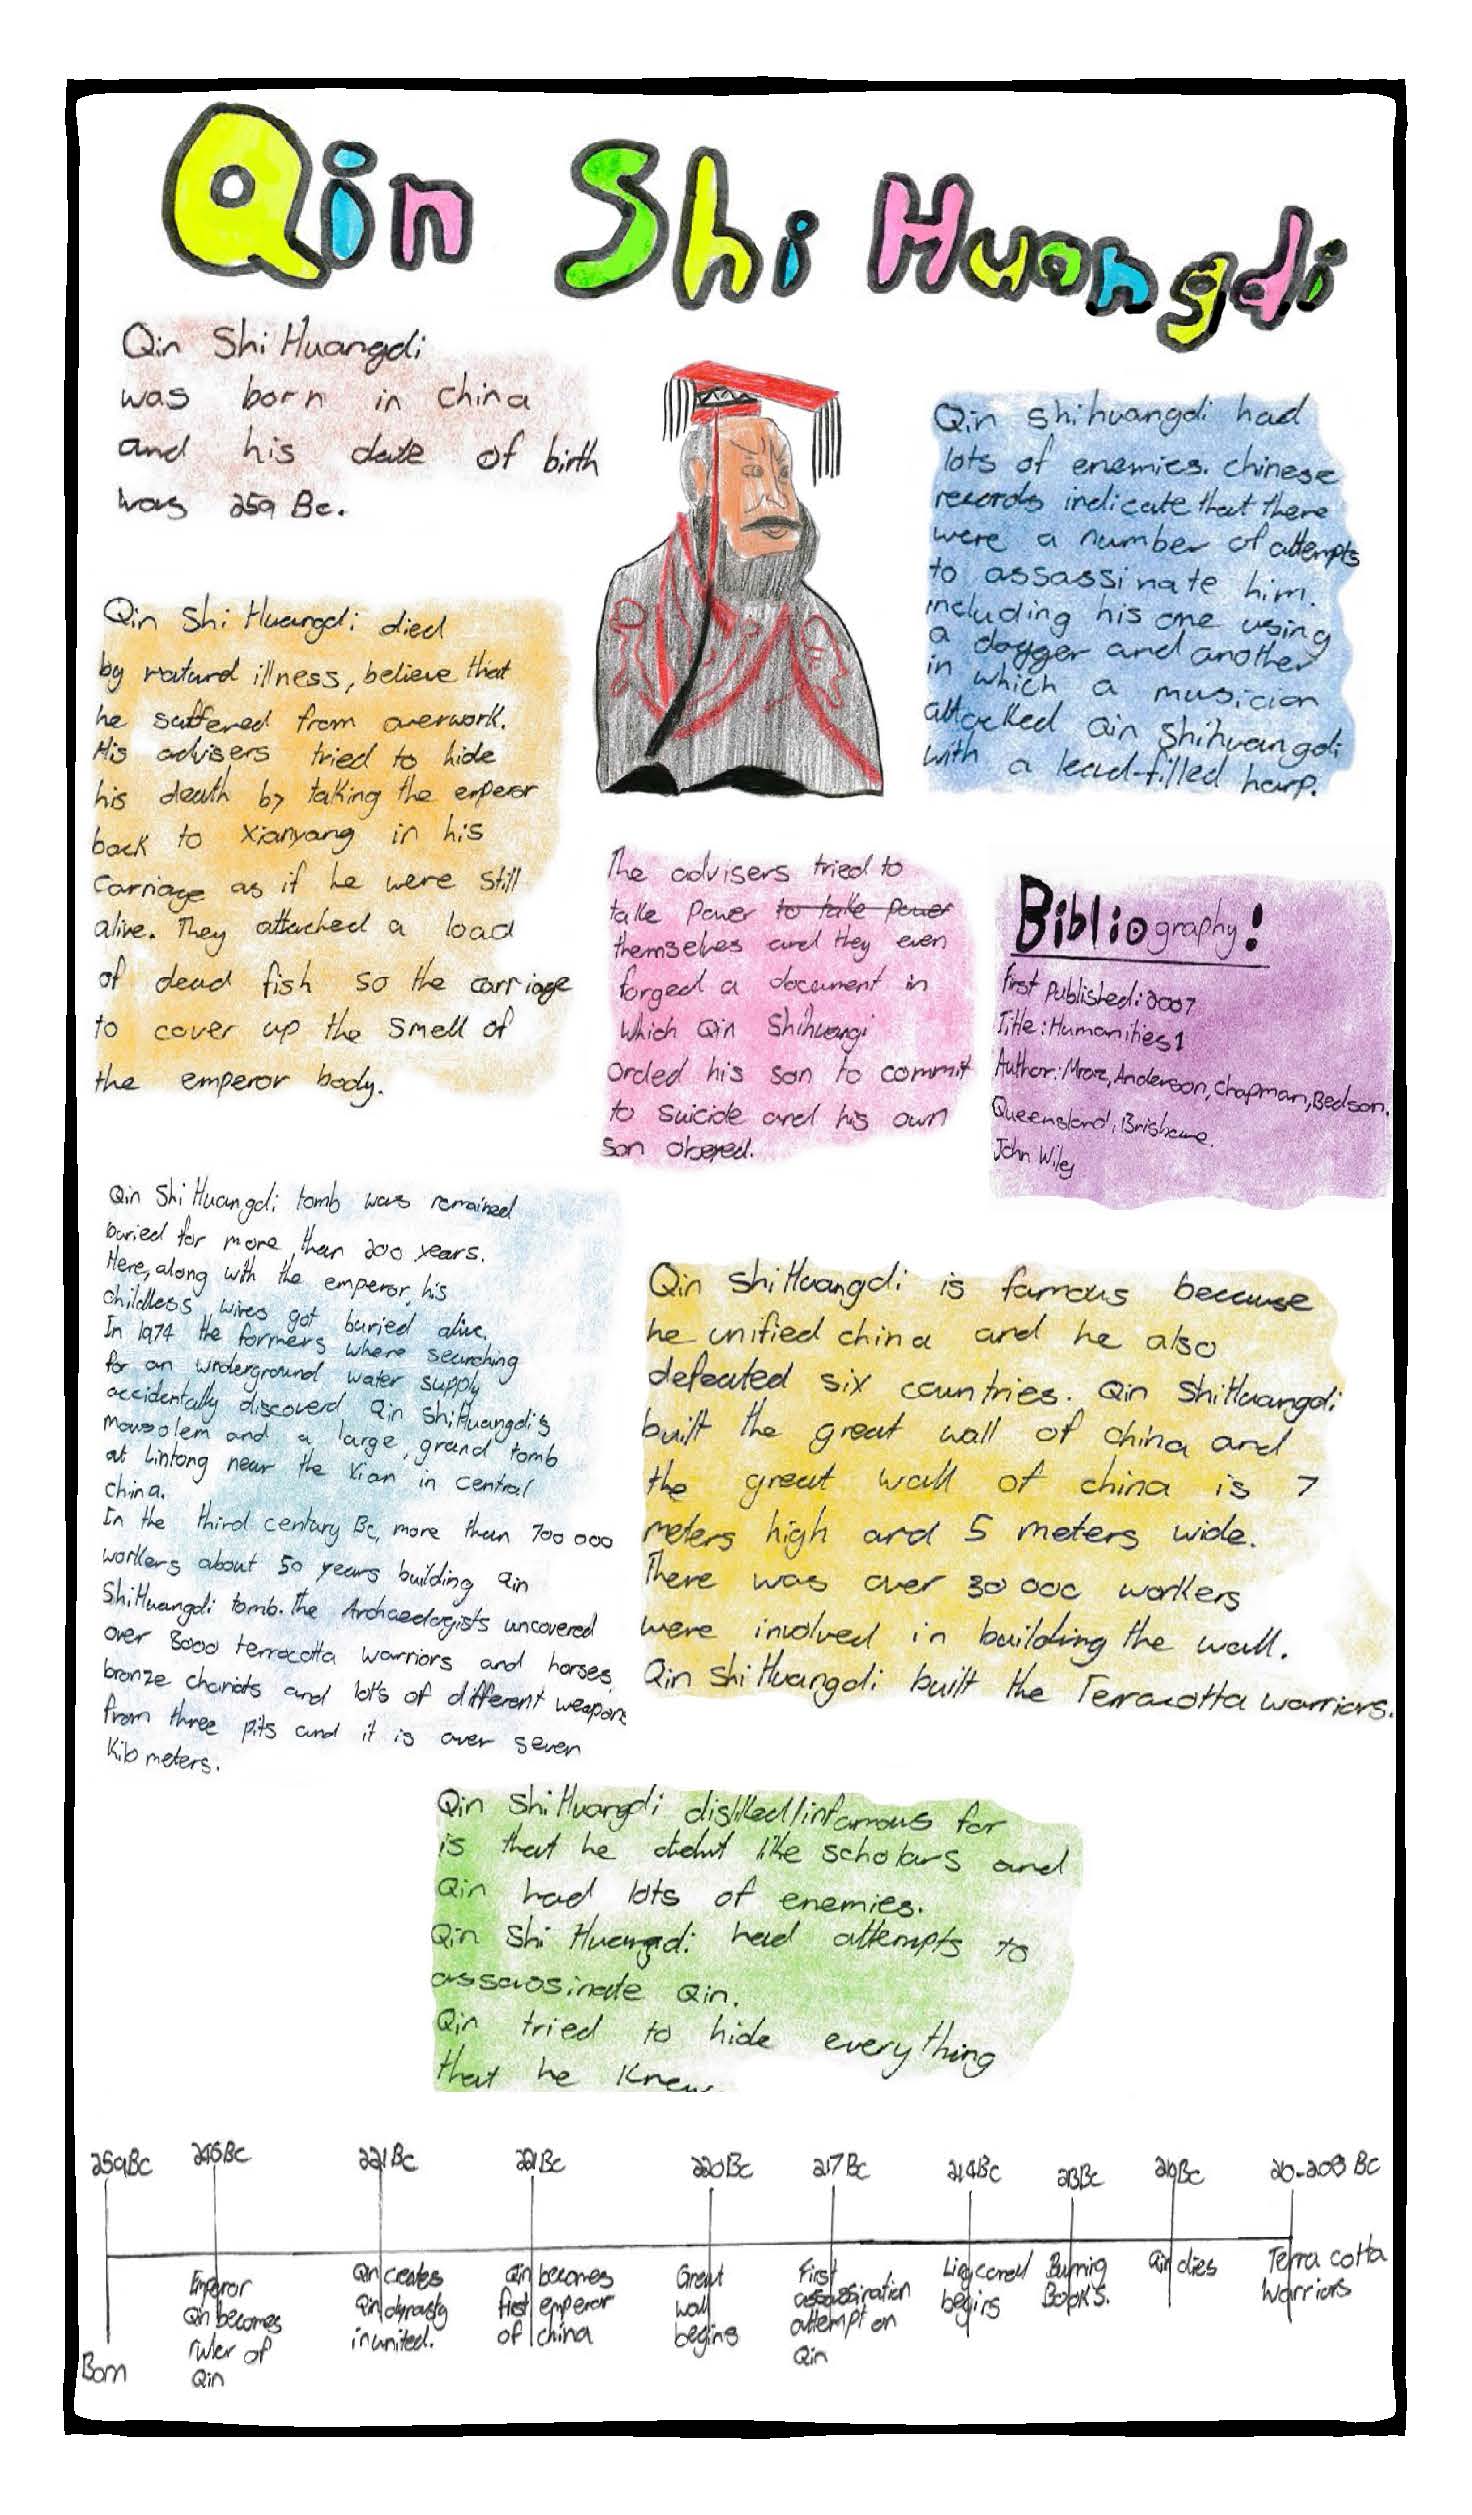 Qin Shi Huangdi
Qin Shi Huangdi
was born in china
and his date of birth
was 259 Bc.
Qin shihuangdi had
lots of enemies. chinese
records indicate that there
were a number of attempts
to assassinate him.
including his one using
a dagger and another
in which a musician
attacked Qin Shihuangdi
with a lead-filled harp.
Qin Shi Huangdi died
by natural illness, believe that
he suffered from overwork.
His advisers tried to hide
his death by taking the emperor
back to Xianyang in his
Carriage as if he were still
alive. They attached a load
of dead fish so the carriage
to cover up the smell of
the emperor body.
The advisers tried to
take Power to take power
themselves and they even
forged a document in
which Qin Shihuangi
orded his son to commit
to suicide and his own
son obeyed.
Bibliography!
First published: 2007
Title: Humanities 1
Author: Mraz, Anderson, Chapman, Bedson.
Queensland, Brisbane.
John Wiley
Qin Shi Huangdi tomb was remained
buried for more than 200 years.
Here, along with the emperor, his
childless wives got buried alive.
In 1974 the farmers where searching
for an underground water supply
accidentally discoverd Qin ShiHuangdi's
mousolem and a large, grand tomb
at Lintong near the Xian in central
china.
In the third century Bc, more than 700 000
workers about 50 years building Qin
ShiHuangdi tomb. The Archaeologists uncovered
over 8000 terracotta warriors and horses,
bronze chariots and lot's of different weapons
from three pits and it is over seven
Kilo meters.
Qin ShiHuangdi is famous because
he unified china and he also
defeated six countries. Qin ShiHuangdi
built the great wall of china and
the great wall of china is 7
meters high and 5 meters wide.
There was over 30 000 workers
were involved in building the wall.
Qin Shi Huangdi built the Terracotta warriors.
Qin Shi Huangdi disliked/infamous for
is that he didnt like scholars and
Qin had lots of enemies.
Qin Shi Huangdi had attempts to
assassinate Qin.
Qin tried to hide everything
that he Knew
259Bc 246Bc 221Bc 221Bc 220Bc 217Bc 214Bc 213Bc 210Bc 210-208 Bc
Born
Emperor
Qin becomes
ruler of
Qin
Qin creates
Qin dynasty
in united.
Qin becomes
first emperor
of china
Great
wall
begins
First
assassination
attempt on
Qin
begins
Burning
Books.
Qin dies
Terra cotta
Warriors